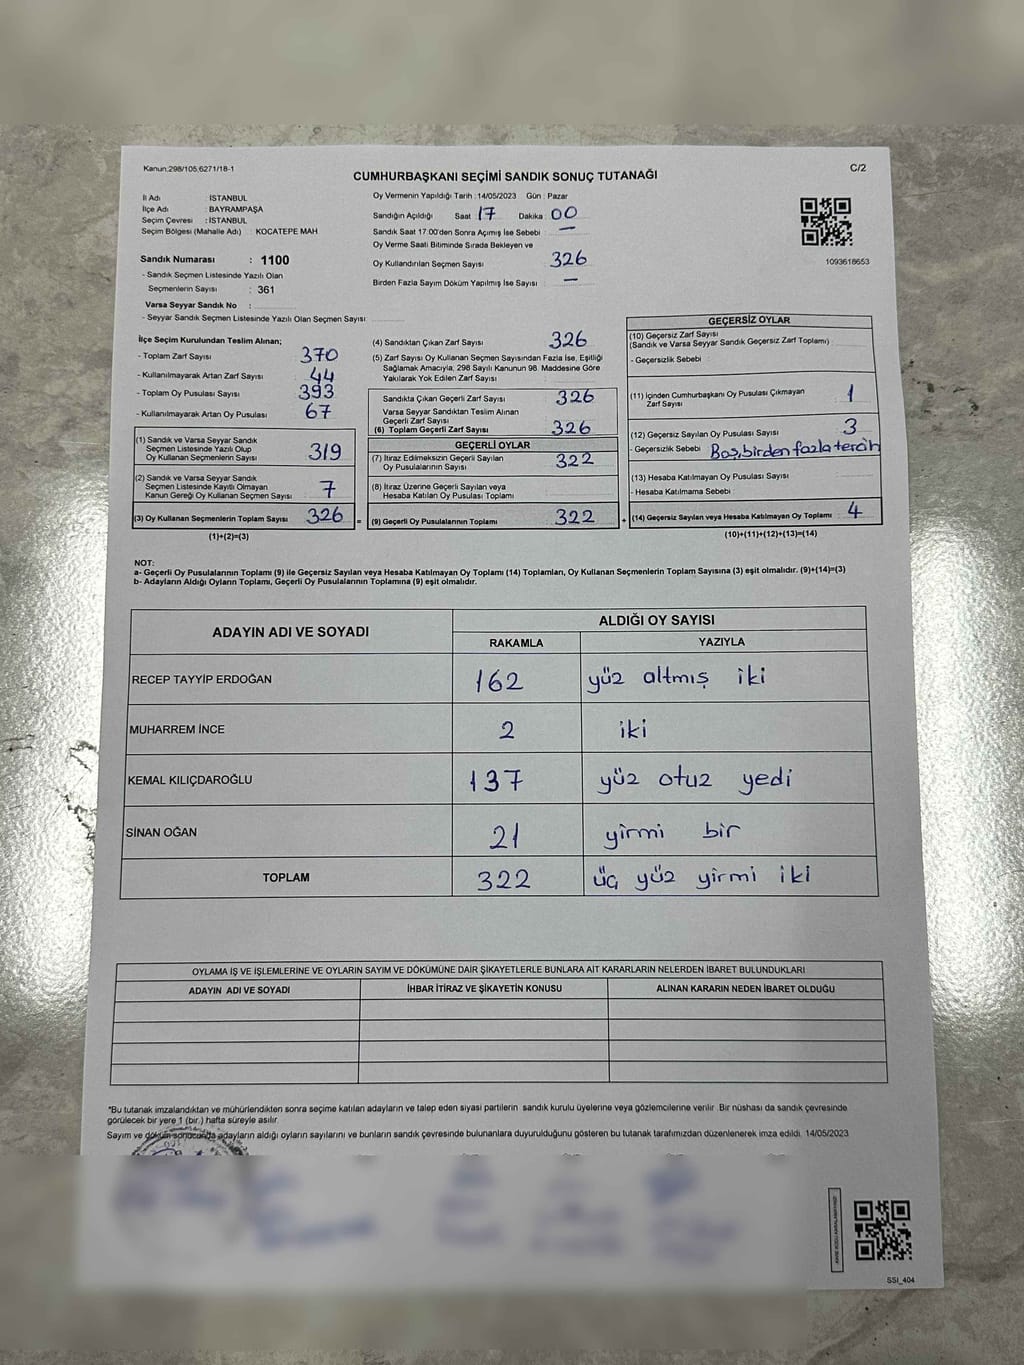 Kanun:298/105;6271/18-1
C/2
CUMHURBAŞKANI SEÇİMİ SANDIK SONUÇ TUTANAĞI
İl Adı : İSTANBUL
İlçe Adı : BAYRAMPAŞA
Seçim Çevresi : İSTANBUL
Seçim Bölgesi (Mahalle Adı) : KOCATEPE MAH
Sandık Numarası : 1100
- Sandık Seçmen Listesinde Yazılı Olan
Seçmenlerin Sayısı : 361
Varsa Seyyar Sandık No :
- Seyyar Sandık Seçmen Listesinde Yazılı Olan Seçmen Sayısı:
Oy Vermenin Yapıldığı Tarih : 14/05/2023 Gün : Pazar
Sandığın Açıldığı Saat 17 Dakika : 00
Sandık Saat 17:00'den Sonra Açımış İse Sebebi : —
Oy Verme Saati Bitiminde Sırada Bekleyen ve
Oy Kullandırılan Seçmen Sayısı : 326
Birden Fazla Sayım Döküm Yapılmış İse Sayısı : —
1093618653
İlçe Seçim Kurulundan Teslim Alınan;
- Toplam Zarf Sayısı : 370
- Kullanılmayarak Artan Zarf Sayısı : 44
- Toplam Oy Pusulası Sayısı : 393
- Kullanılmayarak Artan Oy Pusulası : 67
(1) Sandık ve Varsa Seyyar Sandık
Seçmen Listesinde Yazılı Olup
Oy Kullanan Seçmenlerin Sayısı : 319
(2) Sandık ve Varsa Seyyar Sandık
Seçmen Listesinde Kayıtlı Olmayan
Kanun Gereği Oy Kullanan Seçmen Sayısı : 7
(3) Oy Kullanan Seçmenlerin Toplam Sayısı : 326
(1)+(2)=(3)
(4) Sandıktan Çıkan Zarf Sayısı : 326
(5) Zarf Sayısı Oy Kullanan Seçmen Sayısından Fazla İse, Eşitliği
Sağlamak Amacıyla, 298 Sayılı Kanunun 98. Maddesine Göre
Yakılarak Yok Edilen Zarf Sayısı :
Sandıkta Çıkan Geçerli Zarf Sayısı : 326
Varsa Seyyar Sandıktan Teslim Alınan
Geçerli Zarf Sayısı :
(6) Toplam Geçerli Zarf Sayısı : 326
GEÇERLİ OYLAR
(7) İtiraz Edilmeksizin Geçerli Sayılan
Oy Pusulalarının Sayısı : 322
(8) İtiraz Üzerine Geçerli Sayılan veya
Hesaba Katılan Oy Pusulası Toplamı :
= (9) Geçerli Oy Pusulalarının Toplamı : 322
GEÇERSİZ OYLAR
(10) Geçersiz Zarf Sayısı
(Sandık ve Varsa Seyyar Sandık Geçersiz Zarf Toplamı) :
- Geçersizlik Sebebi :
(11) İçinden Cumhurbaşkanı Oy Pusulası Çıkmayan
Zarf Sayısı : 1
(12) Geçersiz Sayılan Oy Pusulası Sayısı : 3
- Geçersizlik Sebebi : Boş, birden fazla tercih
(13) Hesaba Katılmayan Oy Pusulası Sayısı :
- Hesaba Katılmama Sebebi :
+ (14) Geçersiz Sayılan veya Hesaba Katılmayan Oy Toplamı : 4
(10)+(11)+(12)+(13)=(14)
NOT:
a- Geçerli Oy Pusulalarının Toplamı (9) ile Geçersiz Sayılan veya Hesaba Katılmayan Oy Toplamı (14) Toplamları, Oy Kullanan Seçmenlerin Toplam Sayısına (3) eşit olmalıdır. (9)+(14)=(3)
b- Adayların Aldığı Oyların Toplamı, Geçerli Oy Pusulalarının Toplamına (9) eşit olmalıdır.
ADAYIN ADI VE SOYADI ALDIĞI OY SAYISI
RAKAMLA YAZIYLA
RECEP TAYYİP ERDOĞAN 162 yüz altmış iki
MUHARREM İNCE 2 iki
KEMAL KILIÇDAROĞLU 137 yüz otuz yedi
SİNAN OĞAN 21 yirmi bir
TOPLAM 322 üç yüz yirmi iki
OYLAMA İŞ VE İŞLEMLERİNE VE OYLARIN SAYIM VE DÖKÜMÜNE DAİR ŞİKAYETLERLE BUNLARA AİT KARARLARIN NELERDEN İBARET BULUNDUKLARI
ADAYIN ADI VE SOYADI İHBAR İTİRAZ VE ŞİKAYETİN KONUSU ALINAN KARARIN NEDEN İBARET OLDUĞU
*Bu tutanak imzalandıktan ve mühürlendikten sonra seçime katılan adayların ve talep eden siyasi partilerin sandık kurulu üyelerine veya gözlemcilerine verilir. Bir nüshası da sandık çevresinde
görülecek bir yere 1 (bir.) hafta süreyle asılır.
Sayım ve döküm sonucunda adayların aldığı oyların sayılarını ve bunların sandık çevresinde bulunanlara duyurulduğunu gösteren bu tutanak tarafımızdan düzenlenerek imza edildi. 14/05/2023
SSI_404